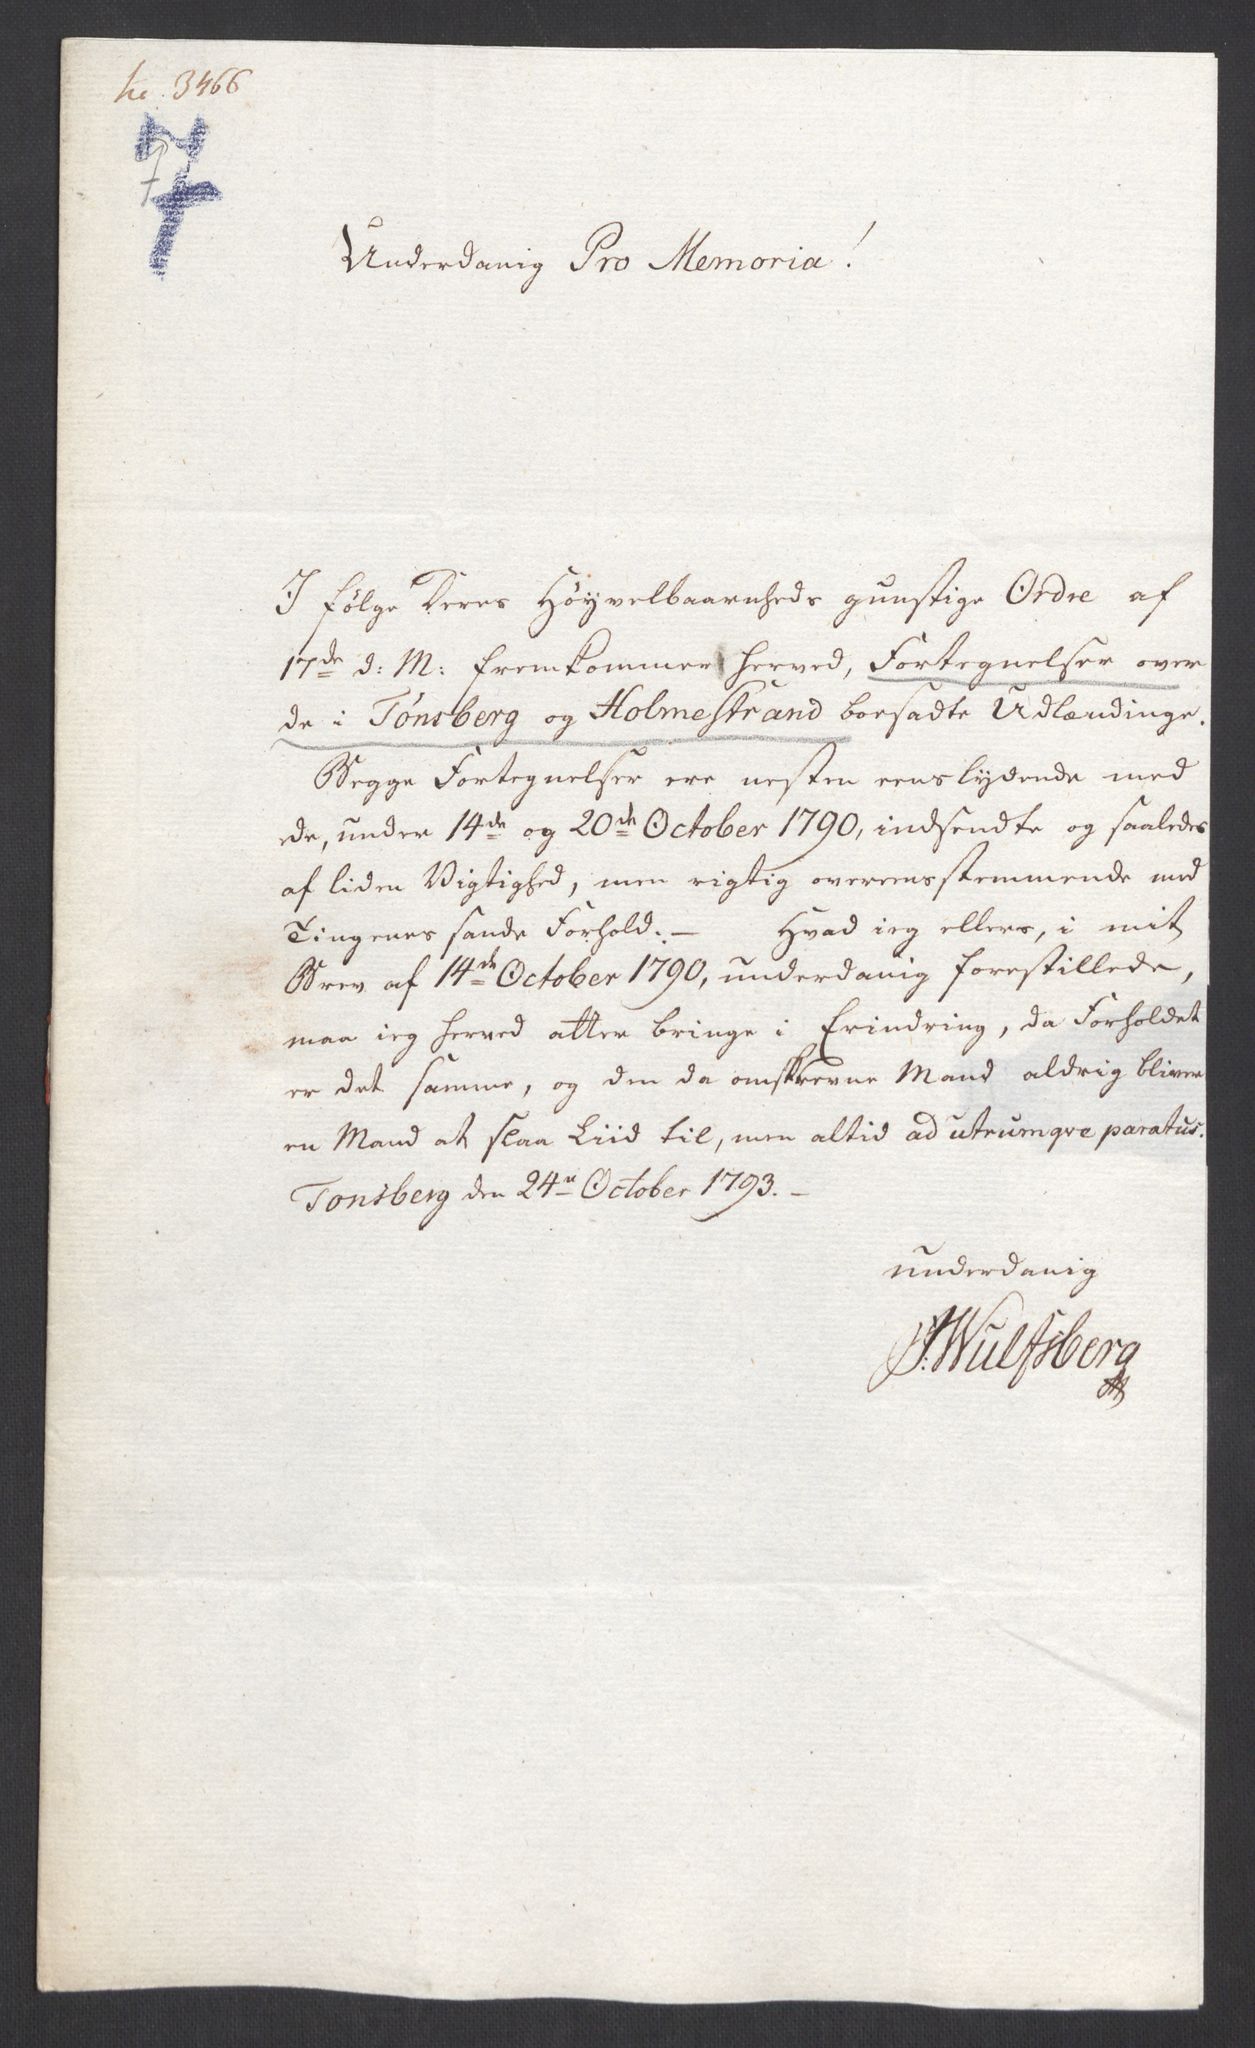 No. 3466
7
7
Underdanig Pro Memoria!
I følge Deres Höyvelbaarnheds gunstige Ordre af
17de d: M: fremkommer herved, Fortegnelser over
de i Tønsberg og Holmestrand boesadte Udlændinge.
Begge Fortegnelser ere nesten eenslydende med
de, under 14de og 20de October 1790, indsendte og saaledes
af liden Vigtighed, men rigtig overeensstemmende med
Tingenes sande Forhold. — Hvad ieg ellers, i mit
Brev af 14de October 1790, underdanig forestillede,
maa ieg herved atter bringe i Erindring, da Forholdet
er det samme, og den da omskrevne Mand aldrig bliver
en Mand at slaa Liid til, men altid ad utrumqve paratus.
Tonsberg den 24de October 1793. —
underdanig
J: Wulfsberg